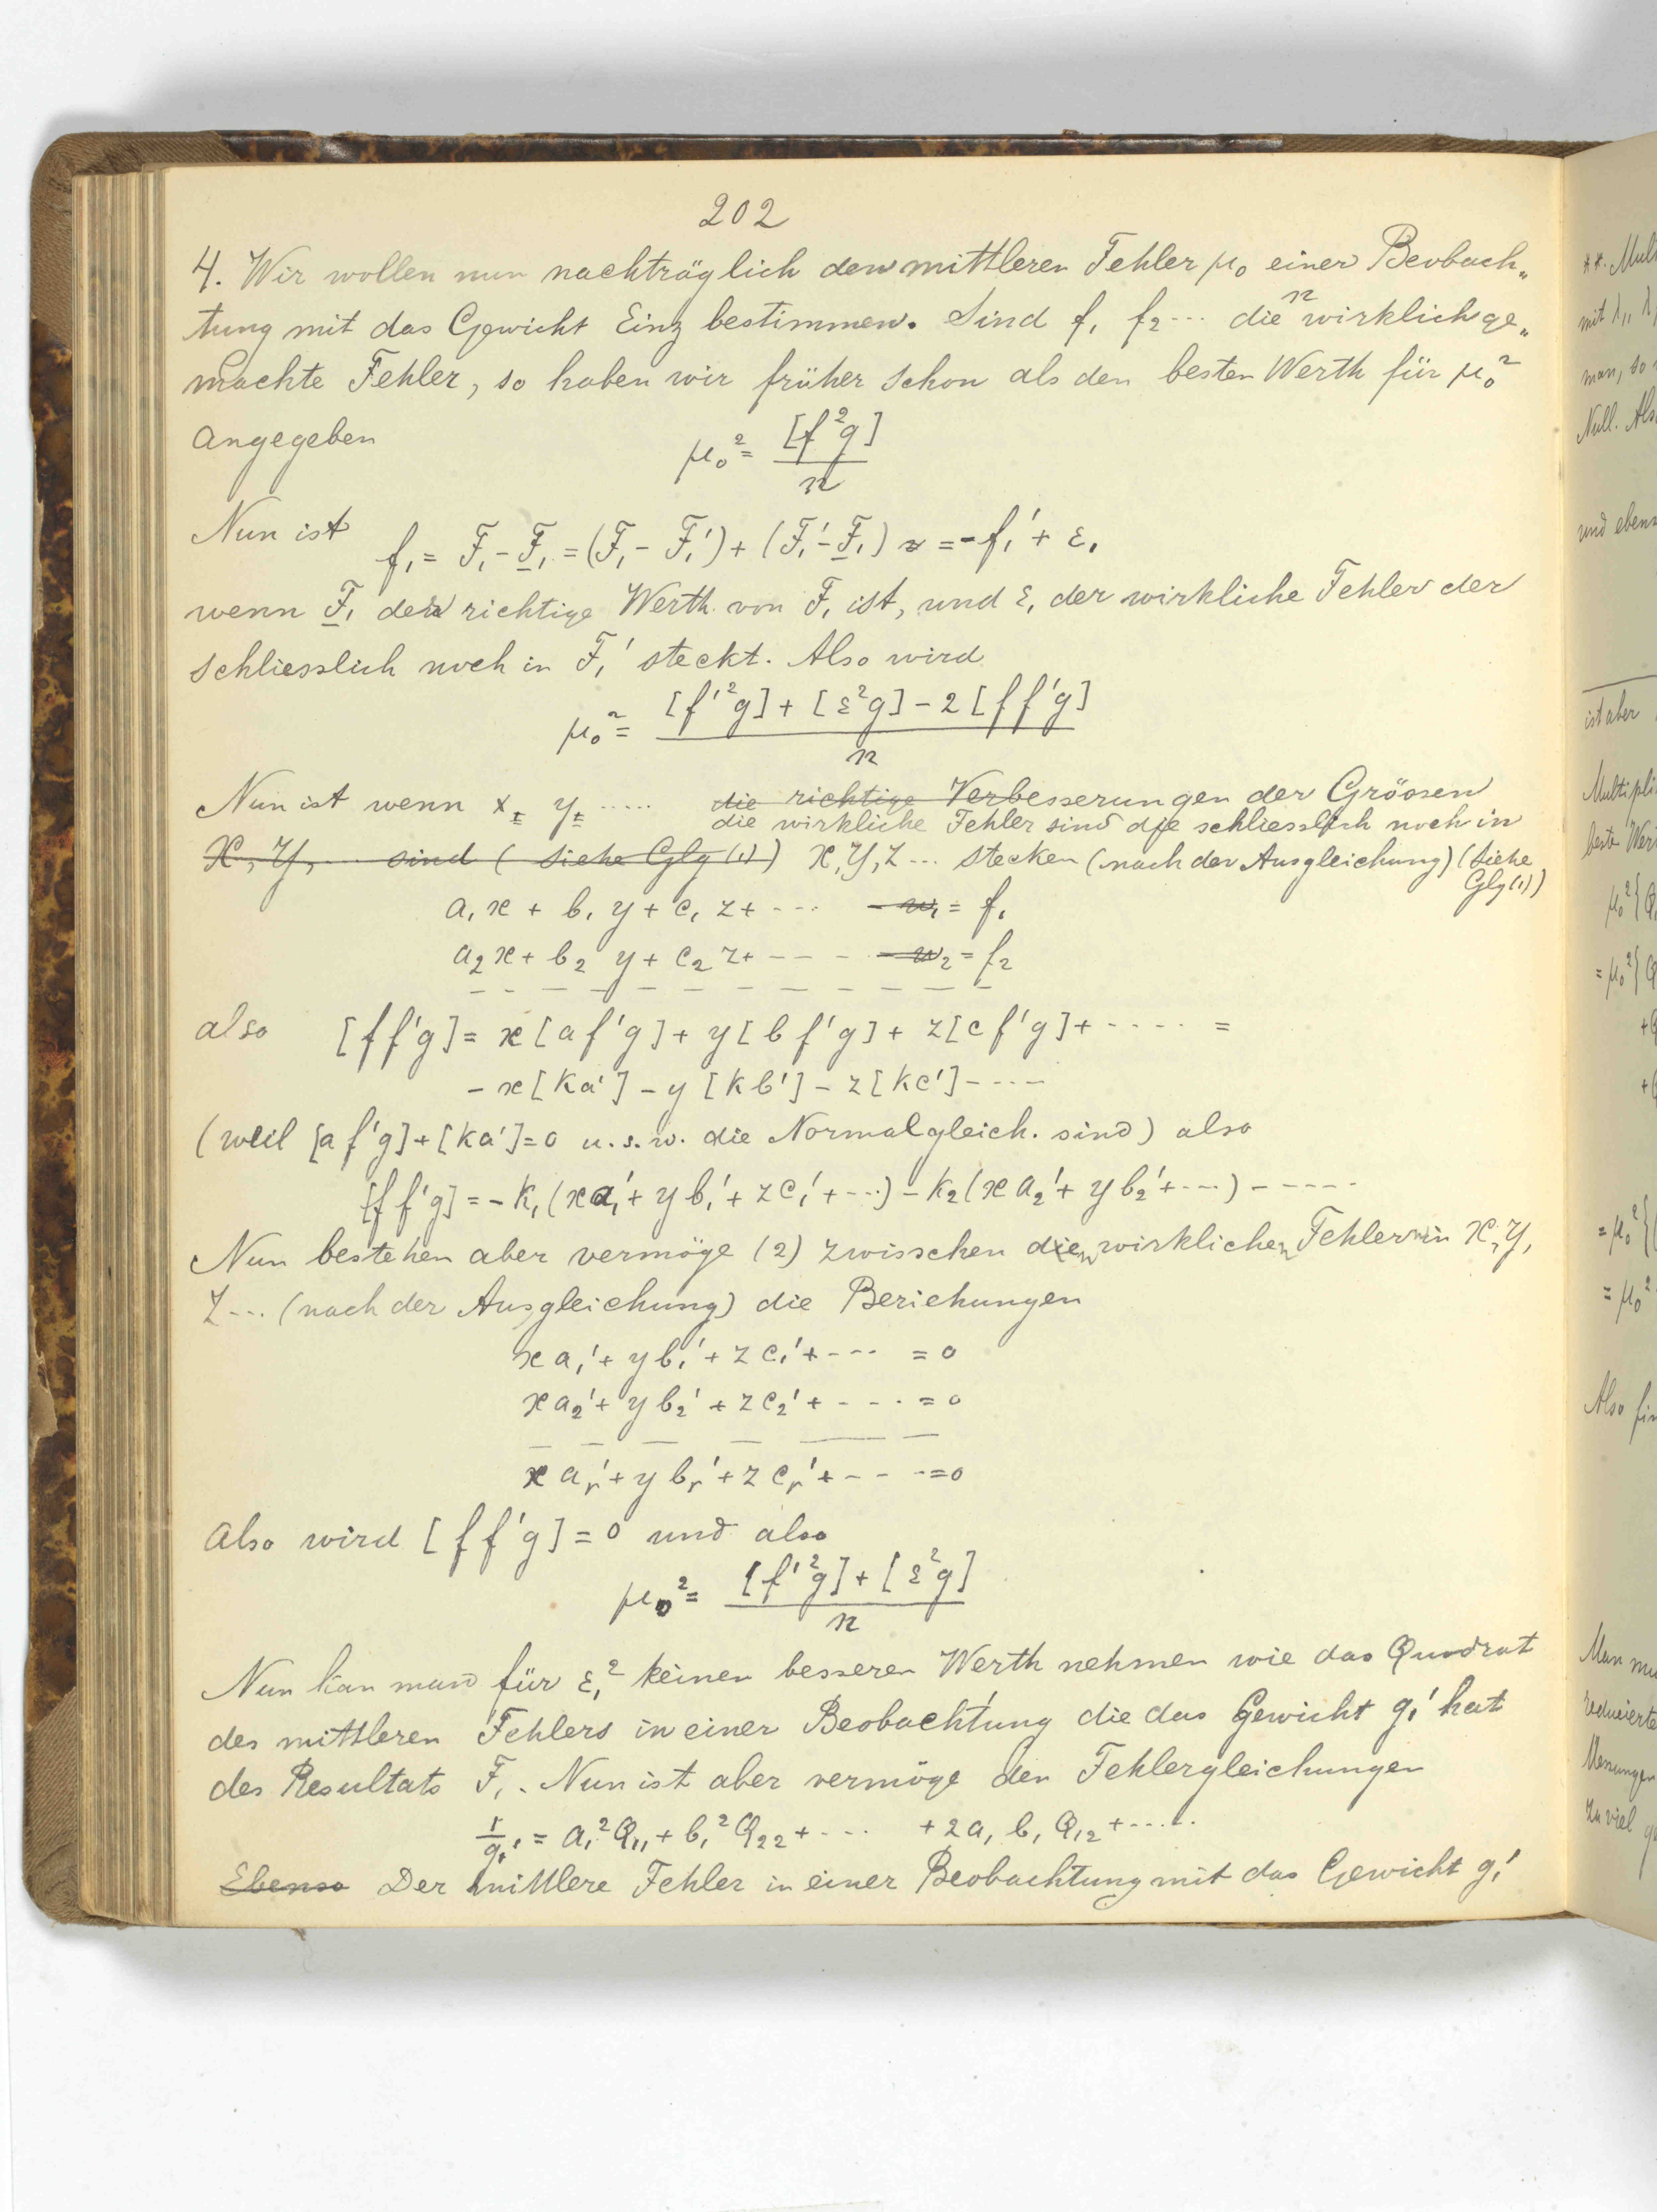 202
4. Wir wollen nun nachträglich den mittleren Fehler μ₀ einer Beobach„
tung mit das Gewicht Einz bestimmen. Sind f₁ f₂ ... die n wirklich ge„
machte Fehler, so haben wir früher schon als den besten Werth für μ₀²
angegeben μ₀² = [f²g] / n
Nun ist f₁ = F₁ - F̲₁ = (F₁ - F₁') + (F₁' - F̲₁) = -f₁' + ε₁
wenn F̲₁ der richtige Werth von F₁ ist, und ε₁ der wirkliche Fehler der
schliesslich noch in F₁' steckt. Also wird
μ₀² = [f'²g] + [ε²g] - 2[ff'g] / n
Nun ist wenn x y ..... die richtige Verbesserungen der Grössen
die wirkliche Fehler sind die schliesslich noch in
X, Y, ... sind (siehe Glg (1)) X, Y, Z ... stecken (nach der Ausgleichung) (siehe
Glg (1))
a₁x + b₁y + c₁z + ... - w₁ = f₁
a₂x + b₂y + c₂z + --- - w₂ = f₂
also [ff'g] = x[af'g] + y[bf'g] + z[cf'g] + ..... =
- x[ka'] - y[kb'] - z[kc'] - ---
(weil [af'g] + [ka'] = 0 u.s.w. die Normalgleich. sind) also
[ff'g] = - k₁(xa₁' + yb₁' + zc₁' + ...) - k₂(xa₂' + yb₂' + ...) - -----
Nun bestehen aber vermöge (2) zwisschen den wirklichen Fehler in X, Y,
Z ... (nach der Ausgleichung) die Beziehungen
xa₁' + yb₁' + zc₁' + ... = 0
xa₂' + yb₂' + zc₂' + ... = 0
xaᵣ' + ybᵣ' + zcᵣ' + ... = 0
Also wird [ff'g] = 0 und also
μ₀² = [f'²g] + [ε²g] / n
Nun kan man für ε₁² keinen besseren Werth nehmen wie das Quadrat
des mittleren Fehlers in einer Beobachtung die das Gewicht g₁' hat
des Resultats F₁. Nun ist aber vermöge den Fehlergleichungen
1/g₁' = a₁²Q₁₁ + b₁²Q₂₂ + ... + 2a₁b₁Q₁₂ + .....
Ebenso Der mittlere Fehler in einer Beobachtung mit das Gewicht g₁'